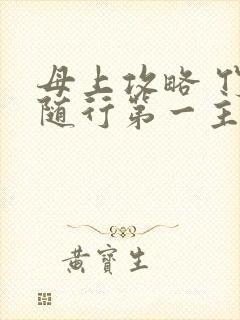 母上攻略
随行第一主
黄寶生